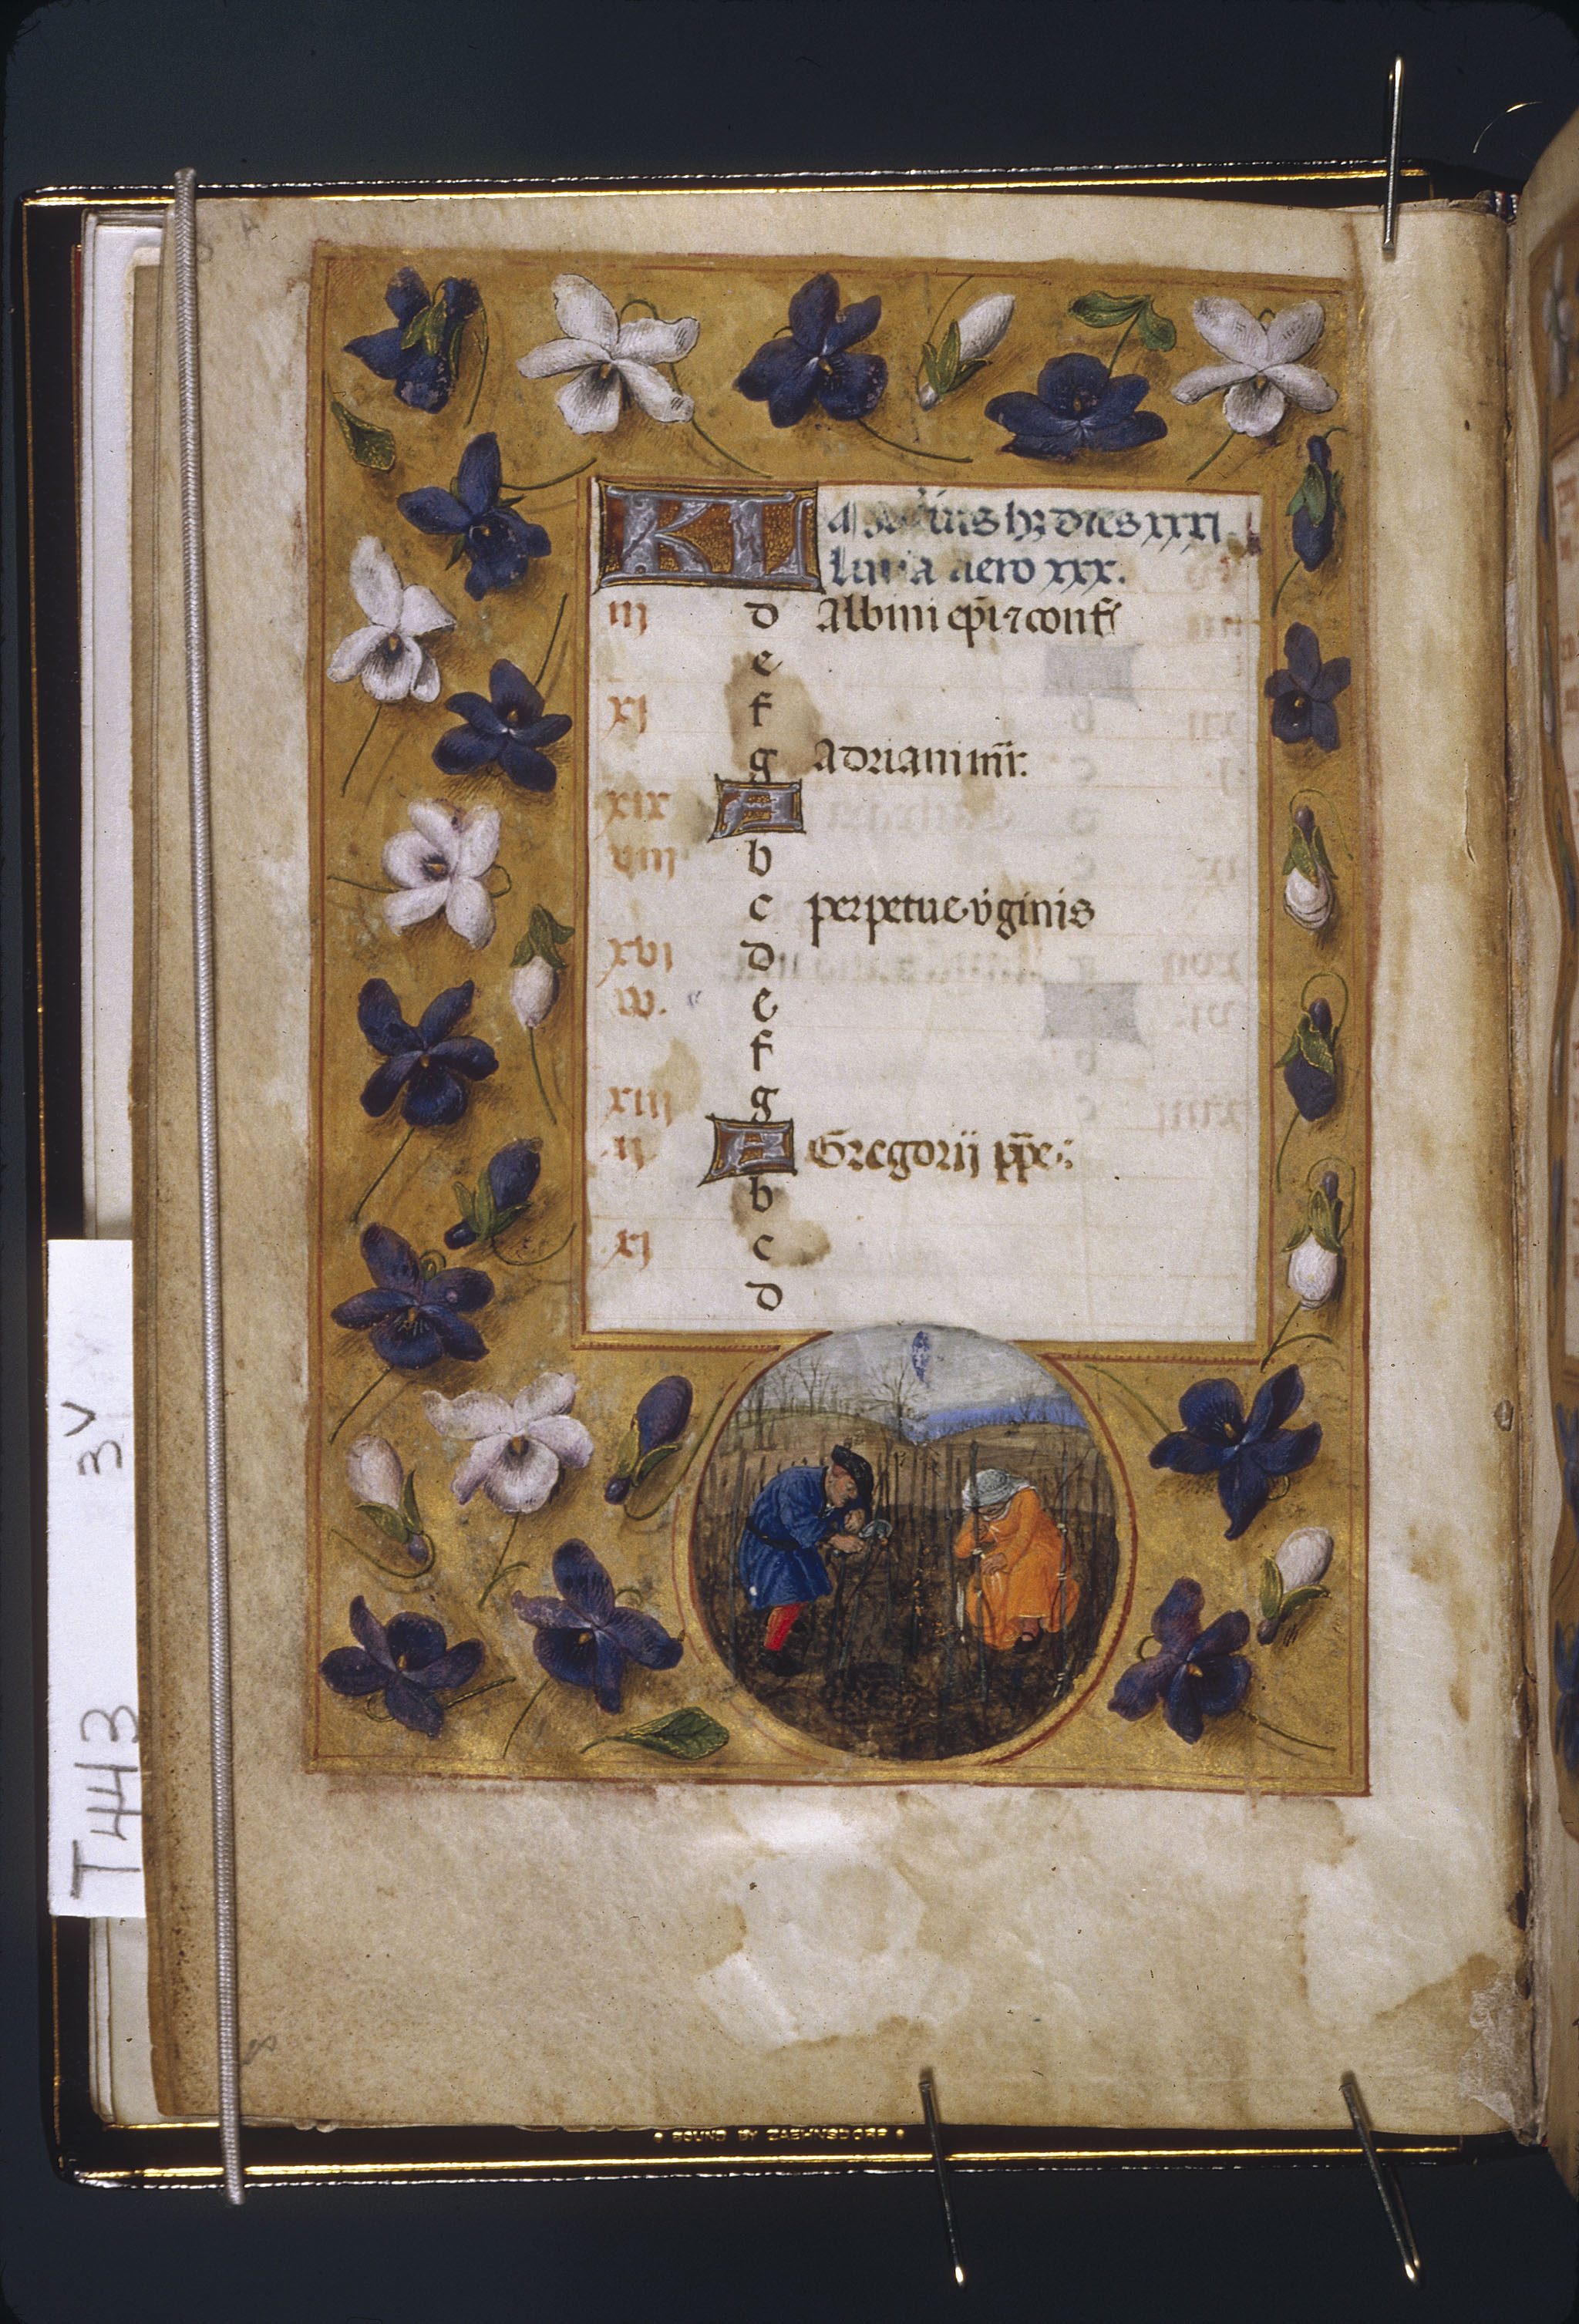 KL Marcius hꝫ dies xxxi
Luna vero xxx.
iij d Albini ep̄i ⁊ conf̄
e
xj f
g Adriani mr̄.
xix A
viij b
c perpetue v̇ginis
xvj d
v. e
f
xiij g
ij A Gregorij pp̄e.
b
xj c
d
3v
T443
BOUND BY ZAEHNSDORF